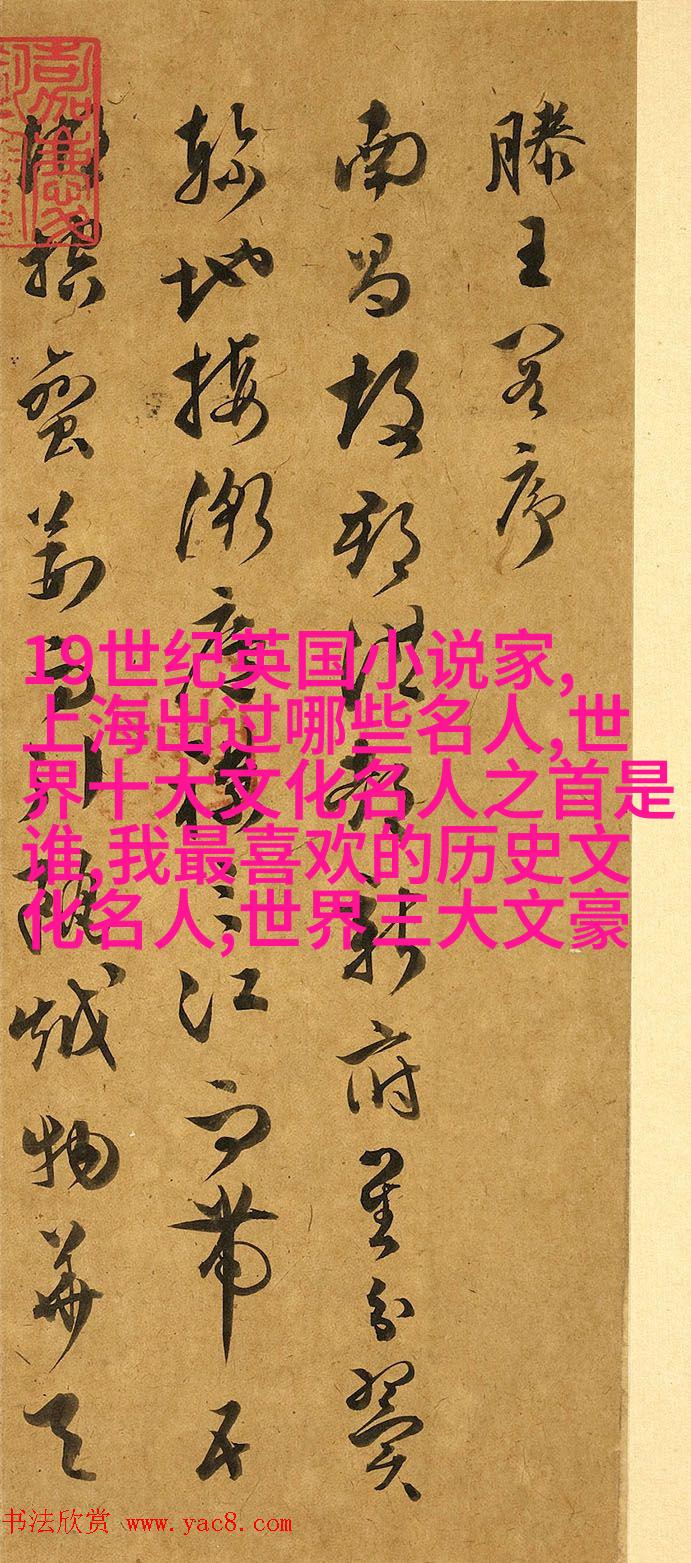 滕王閣序
南昌故郡洪都新府星分翼
軫地接衡廬襟三江而帶五
湖控蠻荆而引甌越物華天
19世纪英国小说家,
上海出过哪些名人,世
界十大文化名人之首是
谁,我最喜欢的历史文
化名人,世界三大文豪
书法欣赏 www.yac8.com